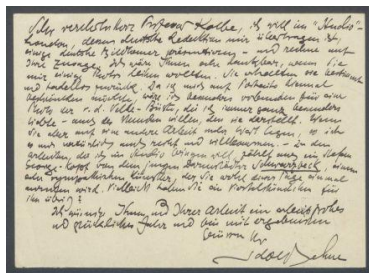 Sehr verehrter Herr Professor Kolbe, ich will im "Studio"-
London, dessen deutsche Redaktion mir übertragen ist,
einige deutsche Bildhauer - und rechne auf
Ihre Zusage. Ich wäre Ihnen sehr dankbar, wenn Sie
mir einige Photos leihen wollten. Sie erhalten sie bestimmt
und tadellos zurück. Da ich mich auf
beschränken möchte, wäre ich besonders verbunden für eine
Photo der v. d. Velde-Büste, die ich immer ganz besonders
liebte - auch des Kunden willen, den sie darstellt. Wenn
Sie aber auf eine andere Arbeit mehr Wert legen, so ist
es mir natürlich auch recht und willkommen. - Zu den
Arbeiten, die ich im Studio bringen will, gehört auch ein
Georg-Kopf von dem jungen Scheurich, einem
sehr sympathischen Künstler, der Sie wohl einmal
aufsuchen wird. Vielleicht haben Sie ein Viertelstündchen für
ihn übrig?
Ich wünsche Ihnen und Ihrer Arbeit ein arbeitsfrohes
und glückliches Jahr und bin mit ergebensten
Grüssen Ihr
Adolf Behne